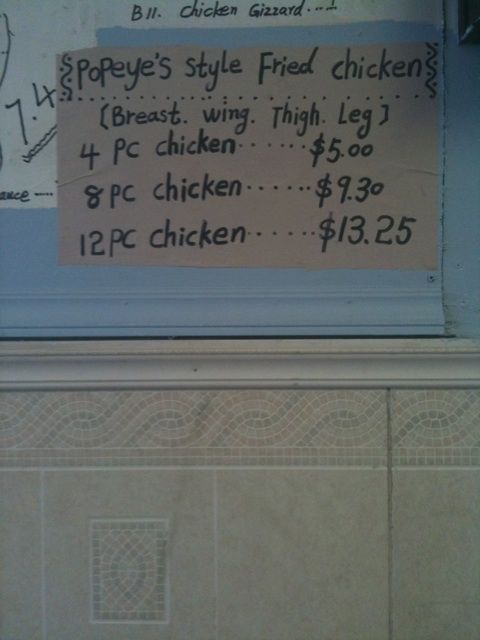 B11. Chicken Gizzard...
Popeye's Style Fried chicken
[Breast. wing. Thigh. Leg]
7.4
4 PC chicken......$5.00
8 PC chicken......$9.30
12 PC chicken......$13.25